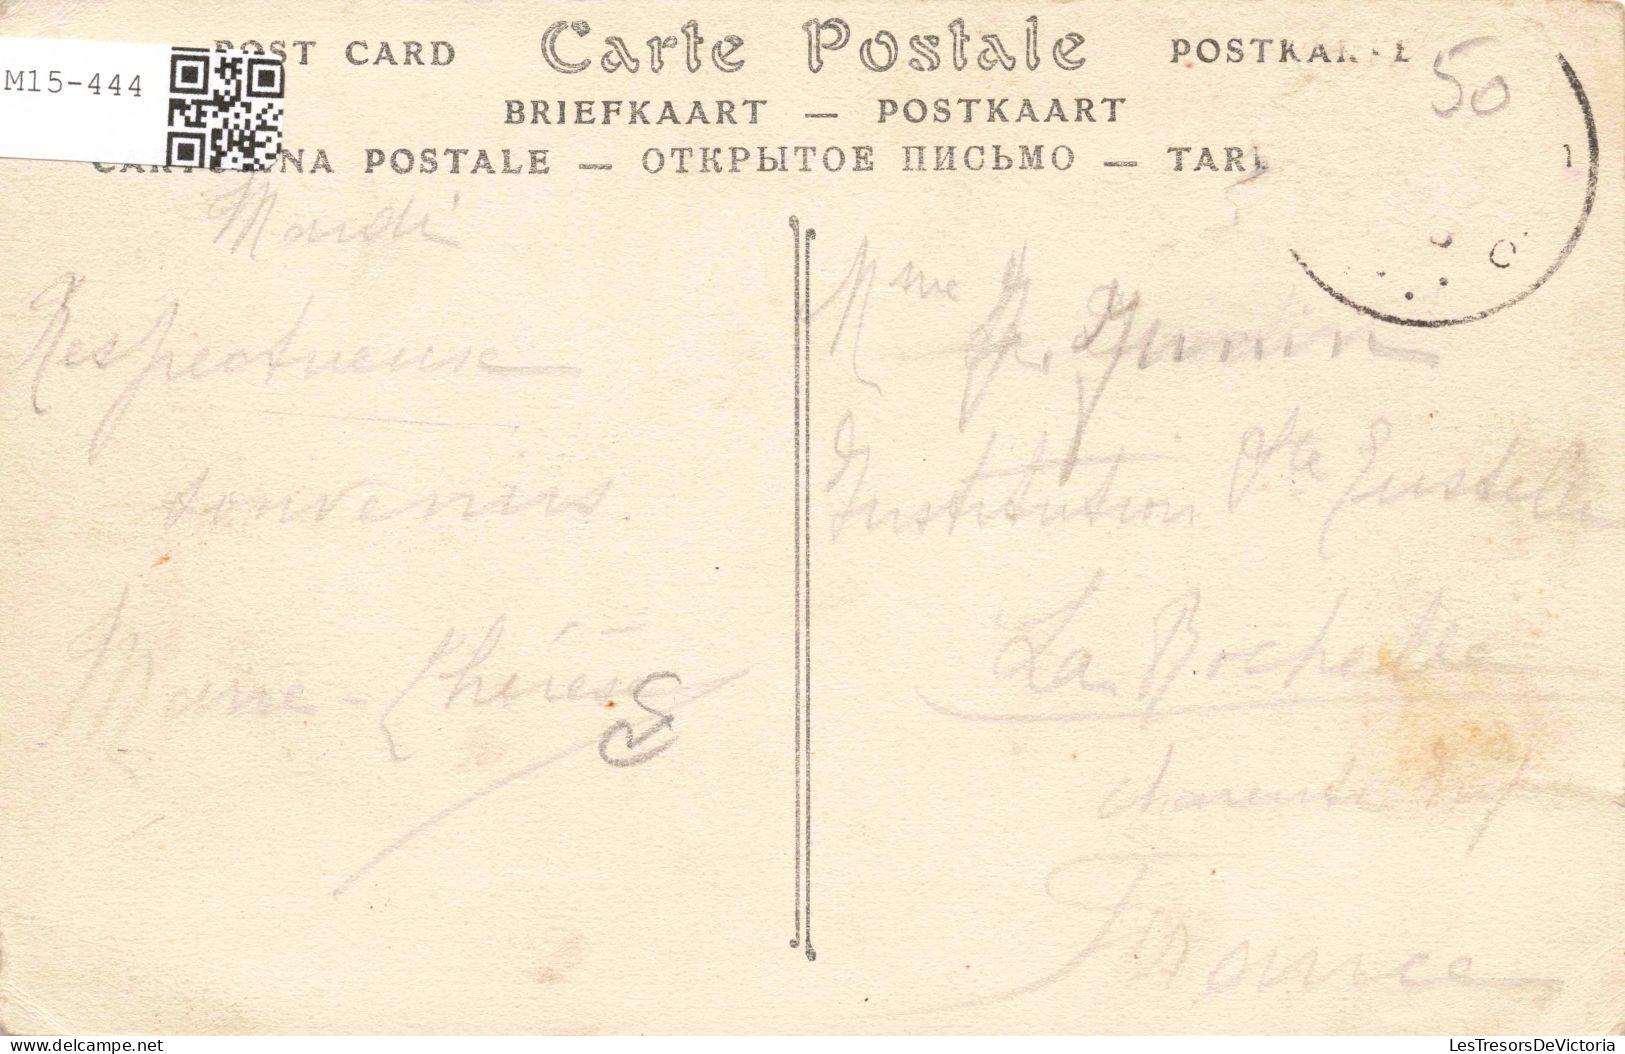 M15-444
POST CARD Carte Postale POSTKARTE
50
BRIEFKAART — POSTKAART
CARTOLINA POSTALE — ОТКРЫТОЕ ПИСЬМО — TARJ
Mardi
Respectueux
souvenirs
Marie-Thérèse
Mme
Institution Ste Eustelle
La Rochelle
Charente Infre
France
delcampe.net
LesTresorsDeVictoria